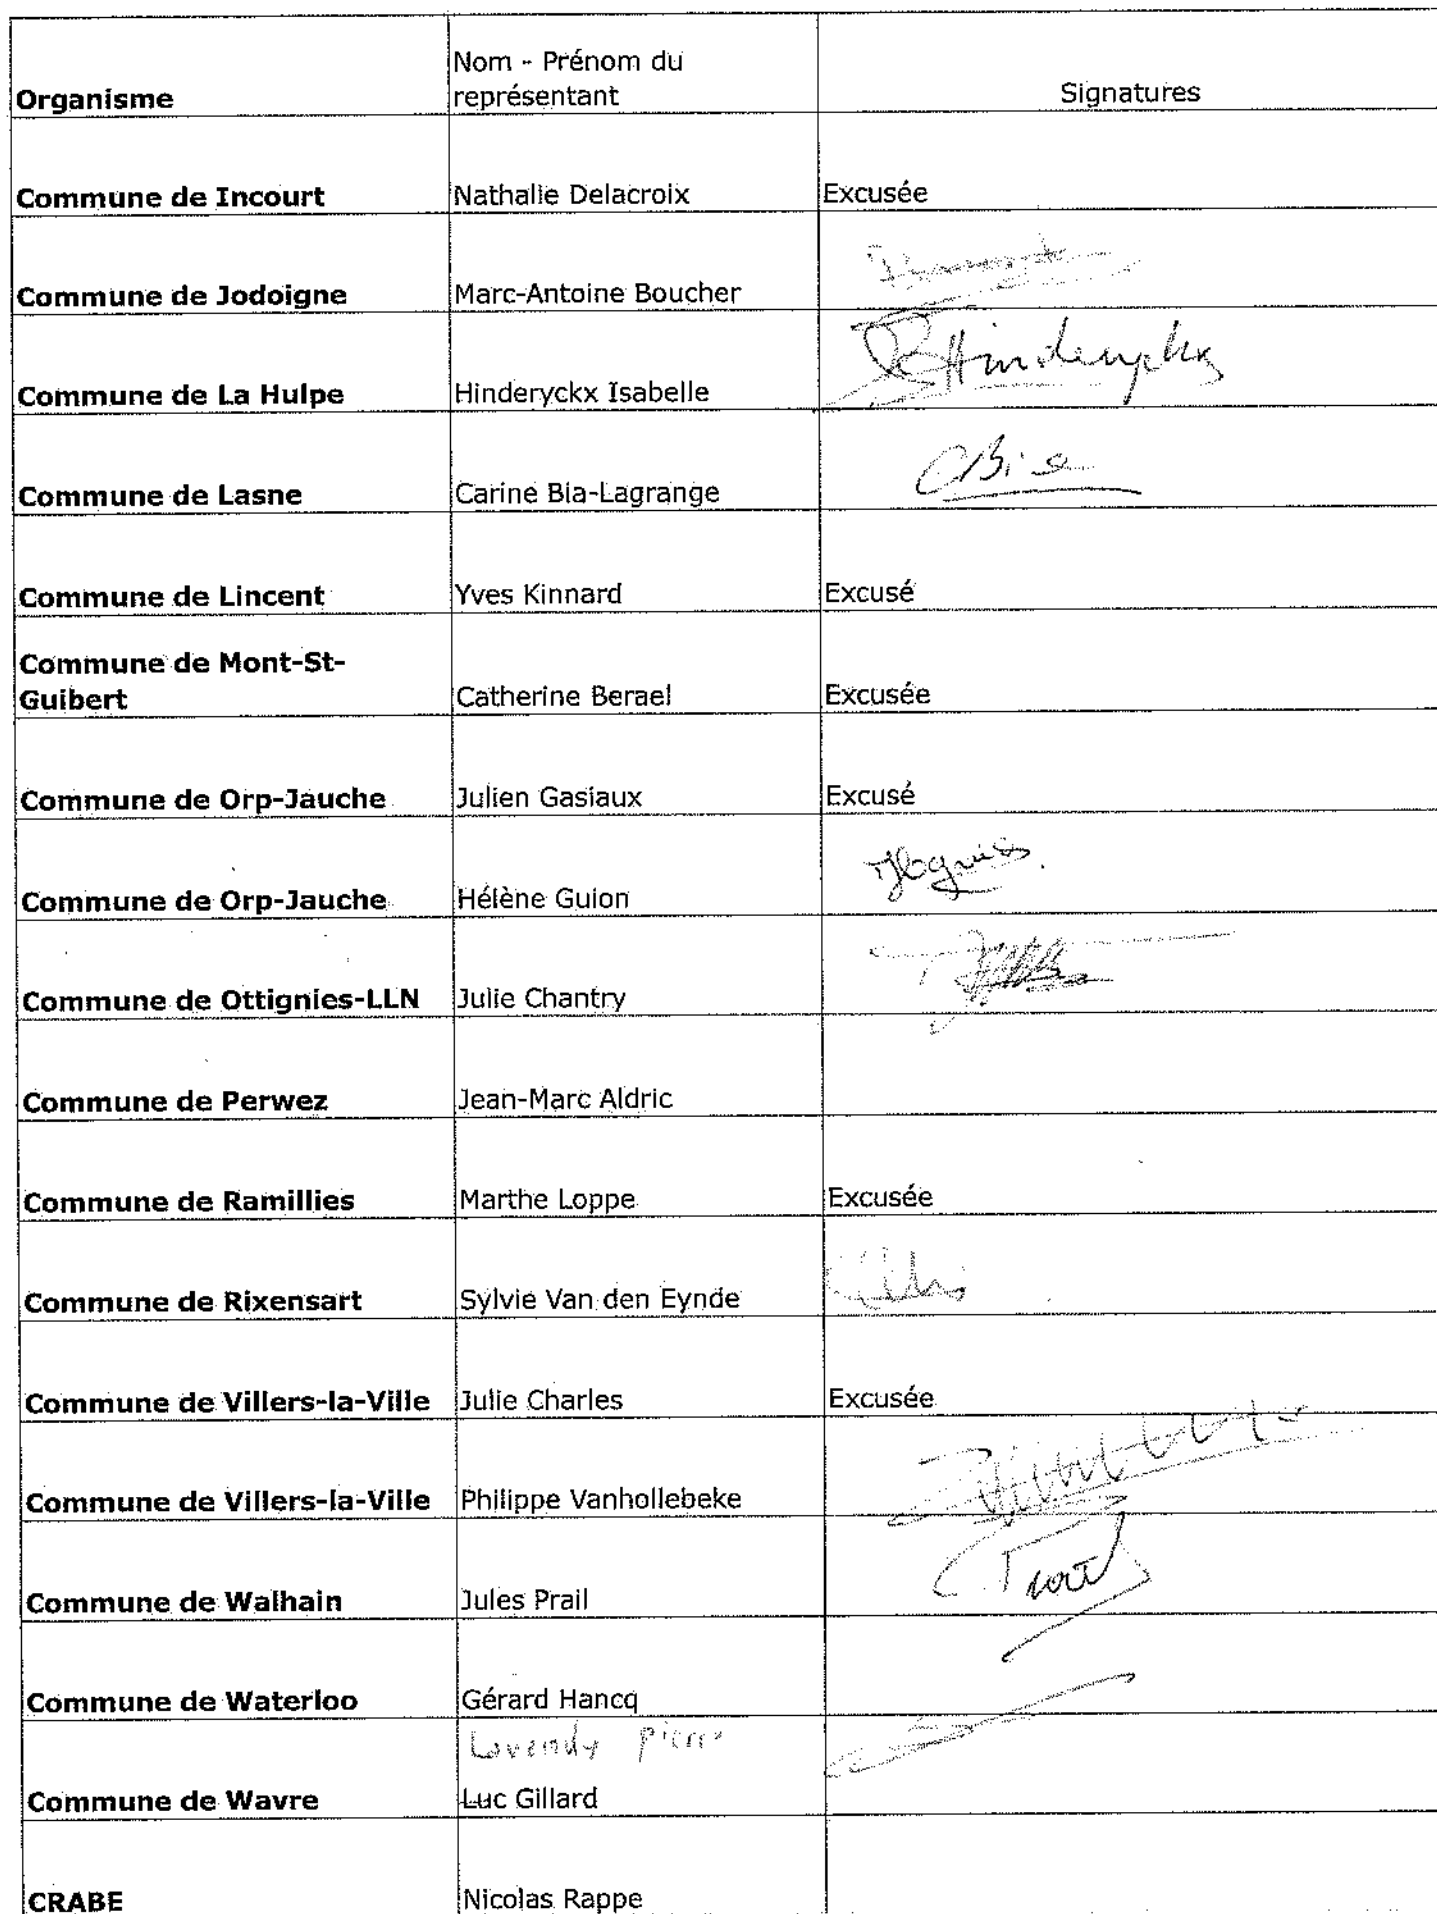 Organisme
Nom - Prénom du
représentant
Signatures
Commune de Incourt
Nathalie Delacroix
Excusée
Commune de Jodoigne
Marc-Antoine Boucher
Commune de La Hulpe
Hinderyckx Isabelle
Hinderyckx
Commune de Lasne
Carine Bia-Lagrange
CBia
Commune de Lincent
Yves Kinnard
Excusé
Commune de Mont-St-
Guibert
Catherine Berael
Excusée
Commune de Orp-Jauche
Julien Gasiaux
Excusé
Commune de Orp-Jauche
Hélène Guion
Commune de Ottignies-LLN
Julie Chantry
Commune de Perwez
Jean-Marc Aldric
Commune de Ramillies
Marthe Loppe
Excusée
Commune de Rixensart
Sylvie Van den Eynde
Commune de Villers-la-Ville
Julie Charles
Excusée
Commune de Villers-la-Ville
Philippe Vanhollebeke
Commune de Walhain
Jules Prail
Commune de Waterloo
Gérard Hancq
Pierre
Commune de Wavre
Luc Gillard
CRABE
Nicolas Rappe